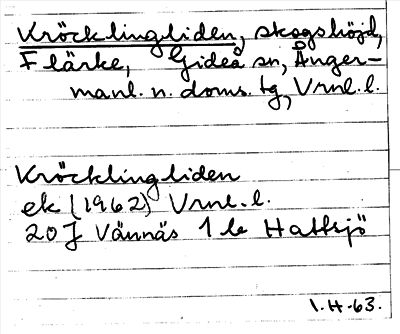 Kröcklingliden, skogshöjd,
Flärke, Gideå sn, Ånger-
manl. n. doms. tg, Vrnl.l.
Kröcklingliden
ek (1962) Vrnl.l.
20J Vännäs 1 Hattsjö
1.H-63.